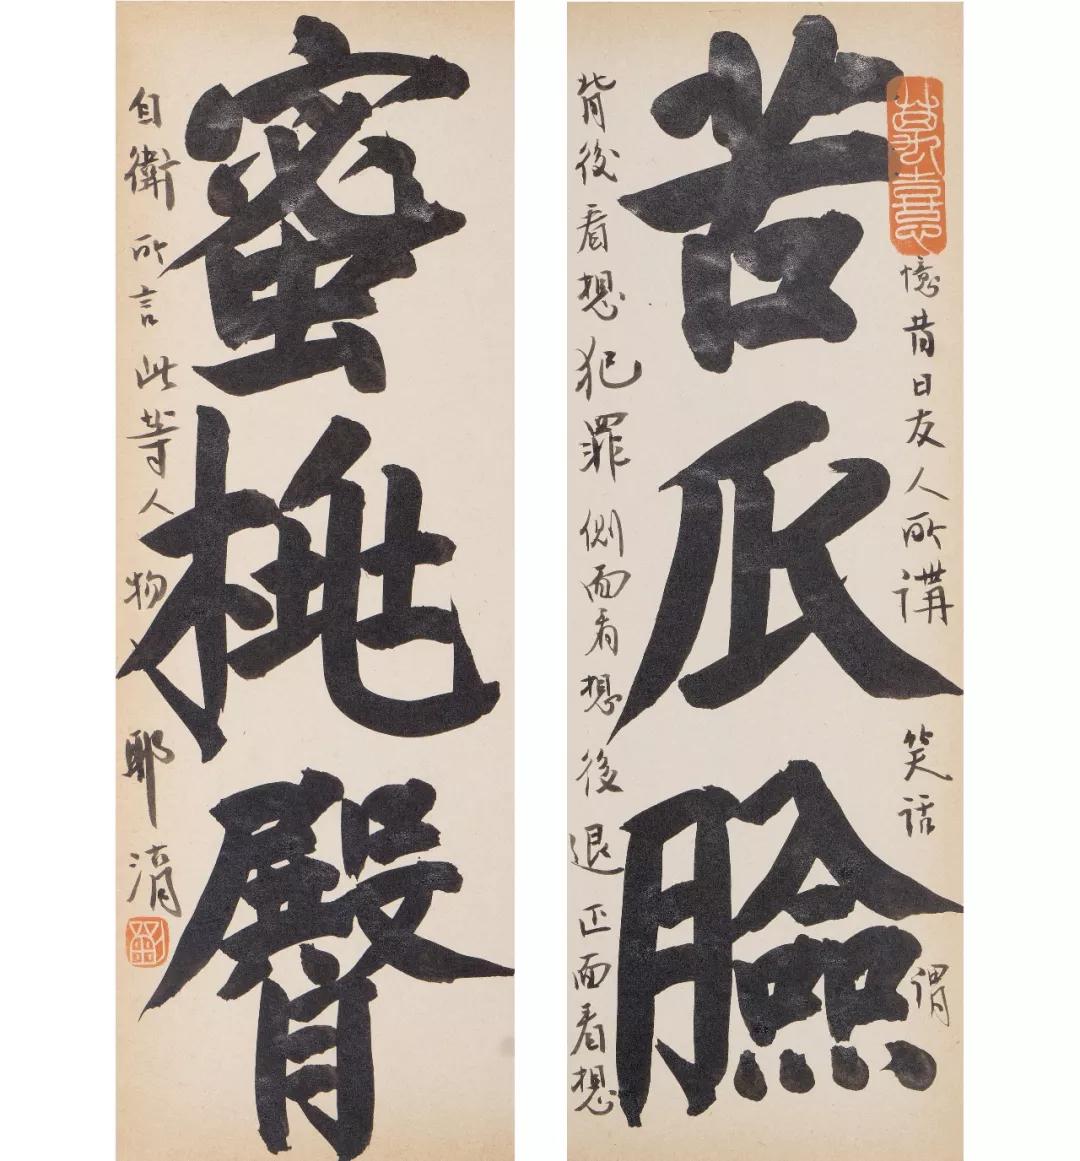 苦瓜臉
憶昔日友人所講笑話謂
背後看想犯罪側面看想後退正面看想
蜜桃臀
自衛所言此等人物
耶清